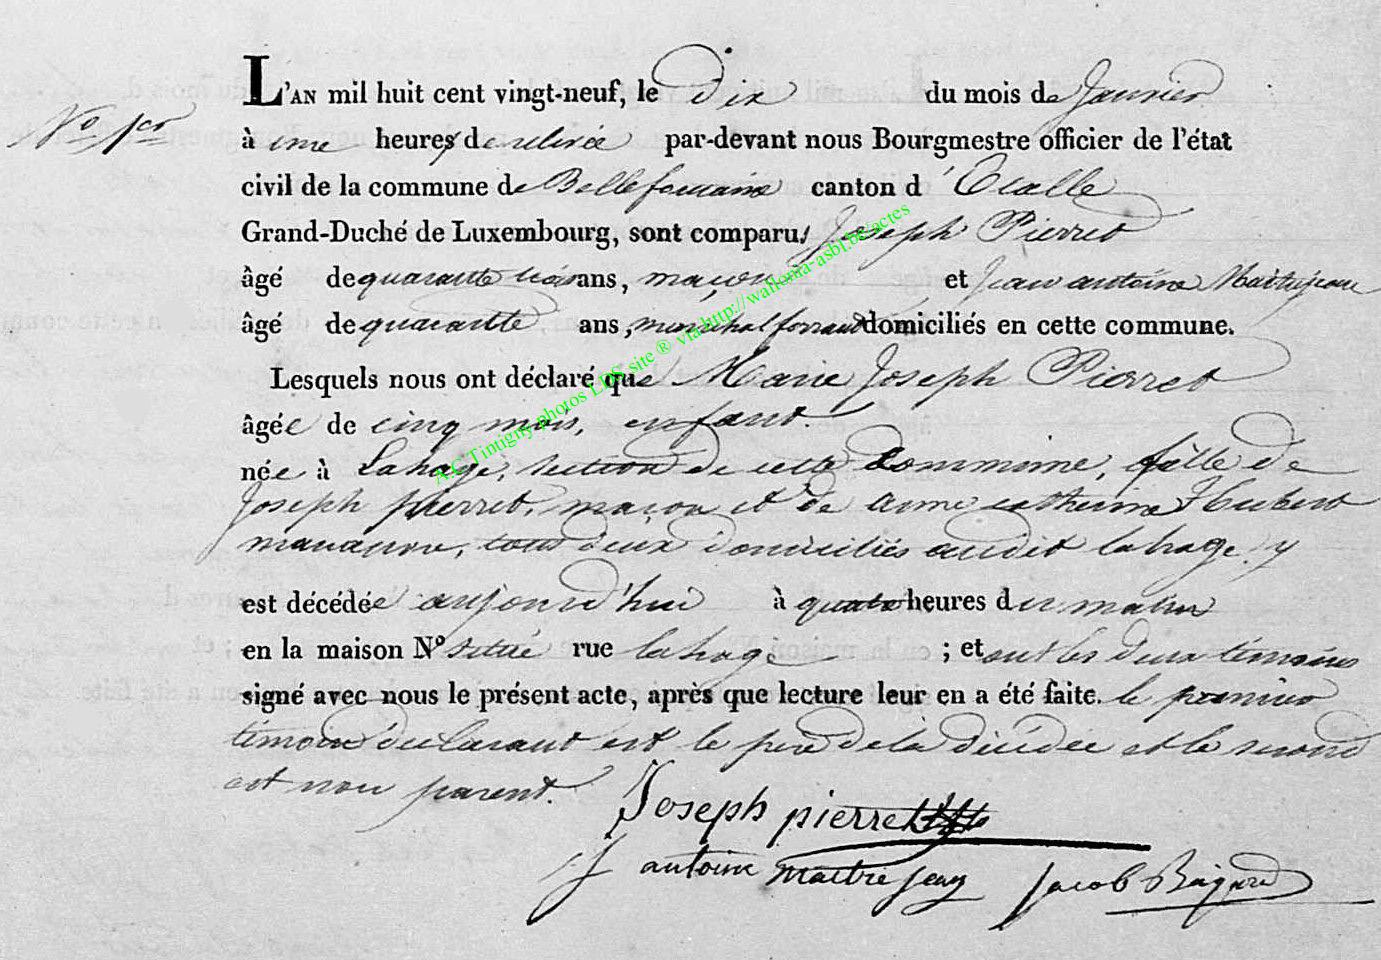 L'AN mil huit cent vingt-neuf, le dix du mois de Janvier
No 1er
à une heures de relevée par-devant nous Bourgmestre officier de l'état
civil de la commune de Bellefontaine canton d'Etalle
Grand-Duché de Luxembourg, sont comparus Joseph Pierret
âgé de quarante trois ans, maçon et Jean antoine Maitrejean
âgé de quarante ans, marechal ferrant domiciliés en cette commune.
Lesquels nous ont déclaré que Marie Joseph Pierret
âgée de cinq mois, enfant.
née à Lahage, section de cette Commune, fille de
Joseph pierret, maçon et de anne catherine Hubert
manauvre, tous deux domiciliés audit lahage. y
est décédée aujourd'hui à quatre heures du matin
en la maison No situé rue lahage ; et ont les deux témoins
signé avec nous le présent acte, après que lecture leur en a été faite. le premier
témoin déclarant est le père de la décédée et le second
est non parent.
Joseph pierret
J antoine maitrejean Jacob Bajard
A.C.Tintigny photos LDS site ® via http://wallonia-asbl.be/actes